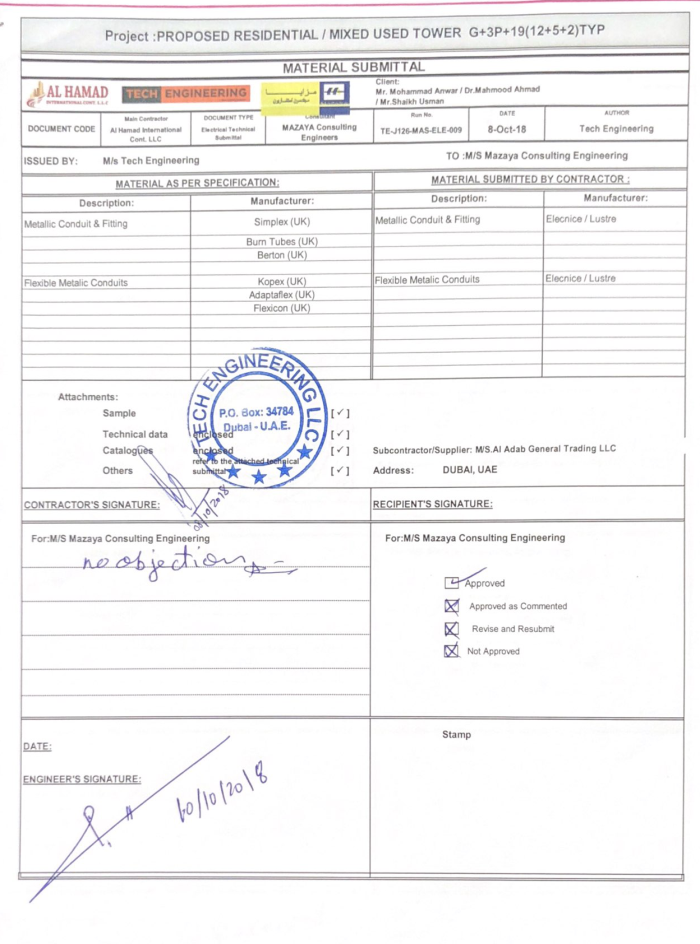 Project :PROPOSED RESIDENTIAL / MIXED USED TOWER G+3P+19(12+5+2)TYP
MATERIAL SUBMITTAL
AL HAMAD
INTERNATIONAL CONT. L.L.C
TECH ENGINEERING
مزايا
Client:
Mr. Mohammad Anwar / Dr.Mahmood Ahmad
/ Mr.Shaikh Usman
DOCUMENT CODE
Main Contractor
Al Hamad International
Cont. LLC
DOCUMENT TYPE
Electrical Technical
Submittal
Consultant
MAZAYA Consulting
Engineers
Run No.
TE-J126-MAS-ELE-009
DATE
8-Oct-18
AUTHOR
Tech Engineering
ISSUED BY: M/s Tech Engineering
TO :M/S Mazaya Consulting Engineering
MATERIAL AS PER SPECIFICATION:
MATERIAL SUBMITTED BY CONTRACTOR :
Description: Manufacturer: Description: Manufacturer:
Metallic Conduit & Fitting Simplex (UK) Metallic Conduit & Fitting Elecnice / Lustre
Burn Tubes (UK)
Berton (UK)
Flexible Metalic Conduits Kopex (UK) Flexible Metalic Conduits Elecnice / Lustre
Adaptaflex (UK)
Flexicon (UK)
TECH ENGINEERING LLC
P.O. Box: 34784
Dubai - U.A.E.
Attachments:
Sample [✓]
Technical data enclosed [✓]
Catalogues enclosed [✓]
Others refer to the attached technical submittal [✓]
Subcontractor/Supplier: M/S.Al Adab General Trading LLC
Address: DUBAI, UAE
08/10/2018
CONTRACTOR'S SIGNATURE:
RECIPIENT'S SIGNATURE:
For:M/S Mazaya Consulting Engineering
no objection
For:M/S Mazaya Consulting Engineering
Approved
Approved as Commented
Revise and Resubmit
Not Approved
DATE:
ENGINEER'S SIGNATURE:
10/10/2018
Stamp